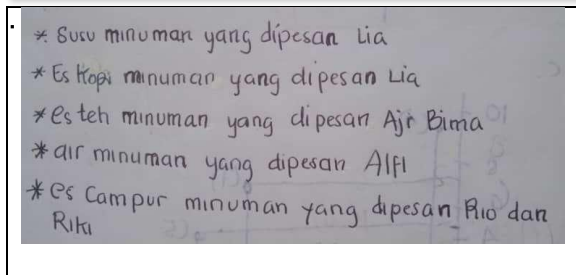 * Susu minuman yang dipesan Lia
* Es Kopi minuman yang dipesan Lia
* es teh minuman yang dipesan Ajr Bima
* air minuman yang dipesan Alfi
* es Campur minuman yang dipesan Rio dan
Riki